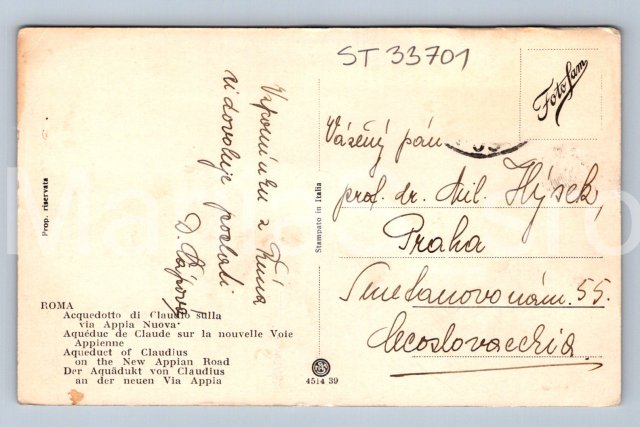 ST 33701
Foto Gam
Vzpomínku z Říma
si dovoluje poslati
D.
Vážený pán
prof. dr. Mil. Hýsek,
Praha
Smetanovo nám. 55.
Cecoslovacchia.
Prop. riservata
Stampato in Italia
ROMA
Acquedotto di Claudio sulla
via Appia Nuova
Aquéduc de Claude sur la nouvelle Voie
Appienne
Aqueduct of Claudius
on the New Appian Road
Der Aquädukt von Claudius
an der neuen Via Appia
4514 39